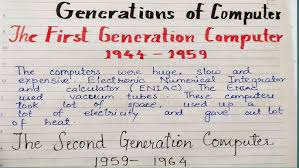 Generations of Computer
The First Generation Computer
1944 - 1959
The computers were huge, slow and
expensive. Electronic Numerical Integrator
and calculator (ENIAC). The ENIAC
used vacuum tubes. These computers
took lot of space, used up a
lot of electricity and gave out lot
of heat.
The Second Generation Computer
1959- 1964